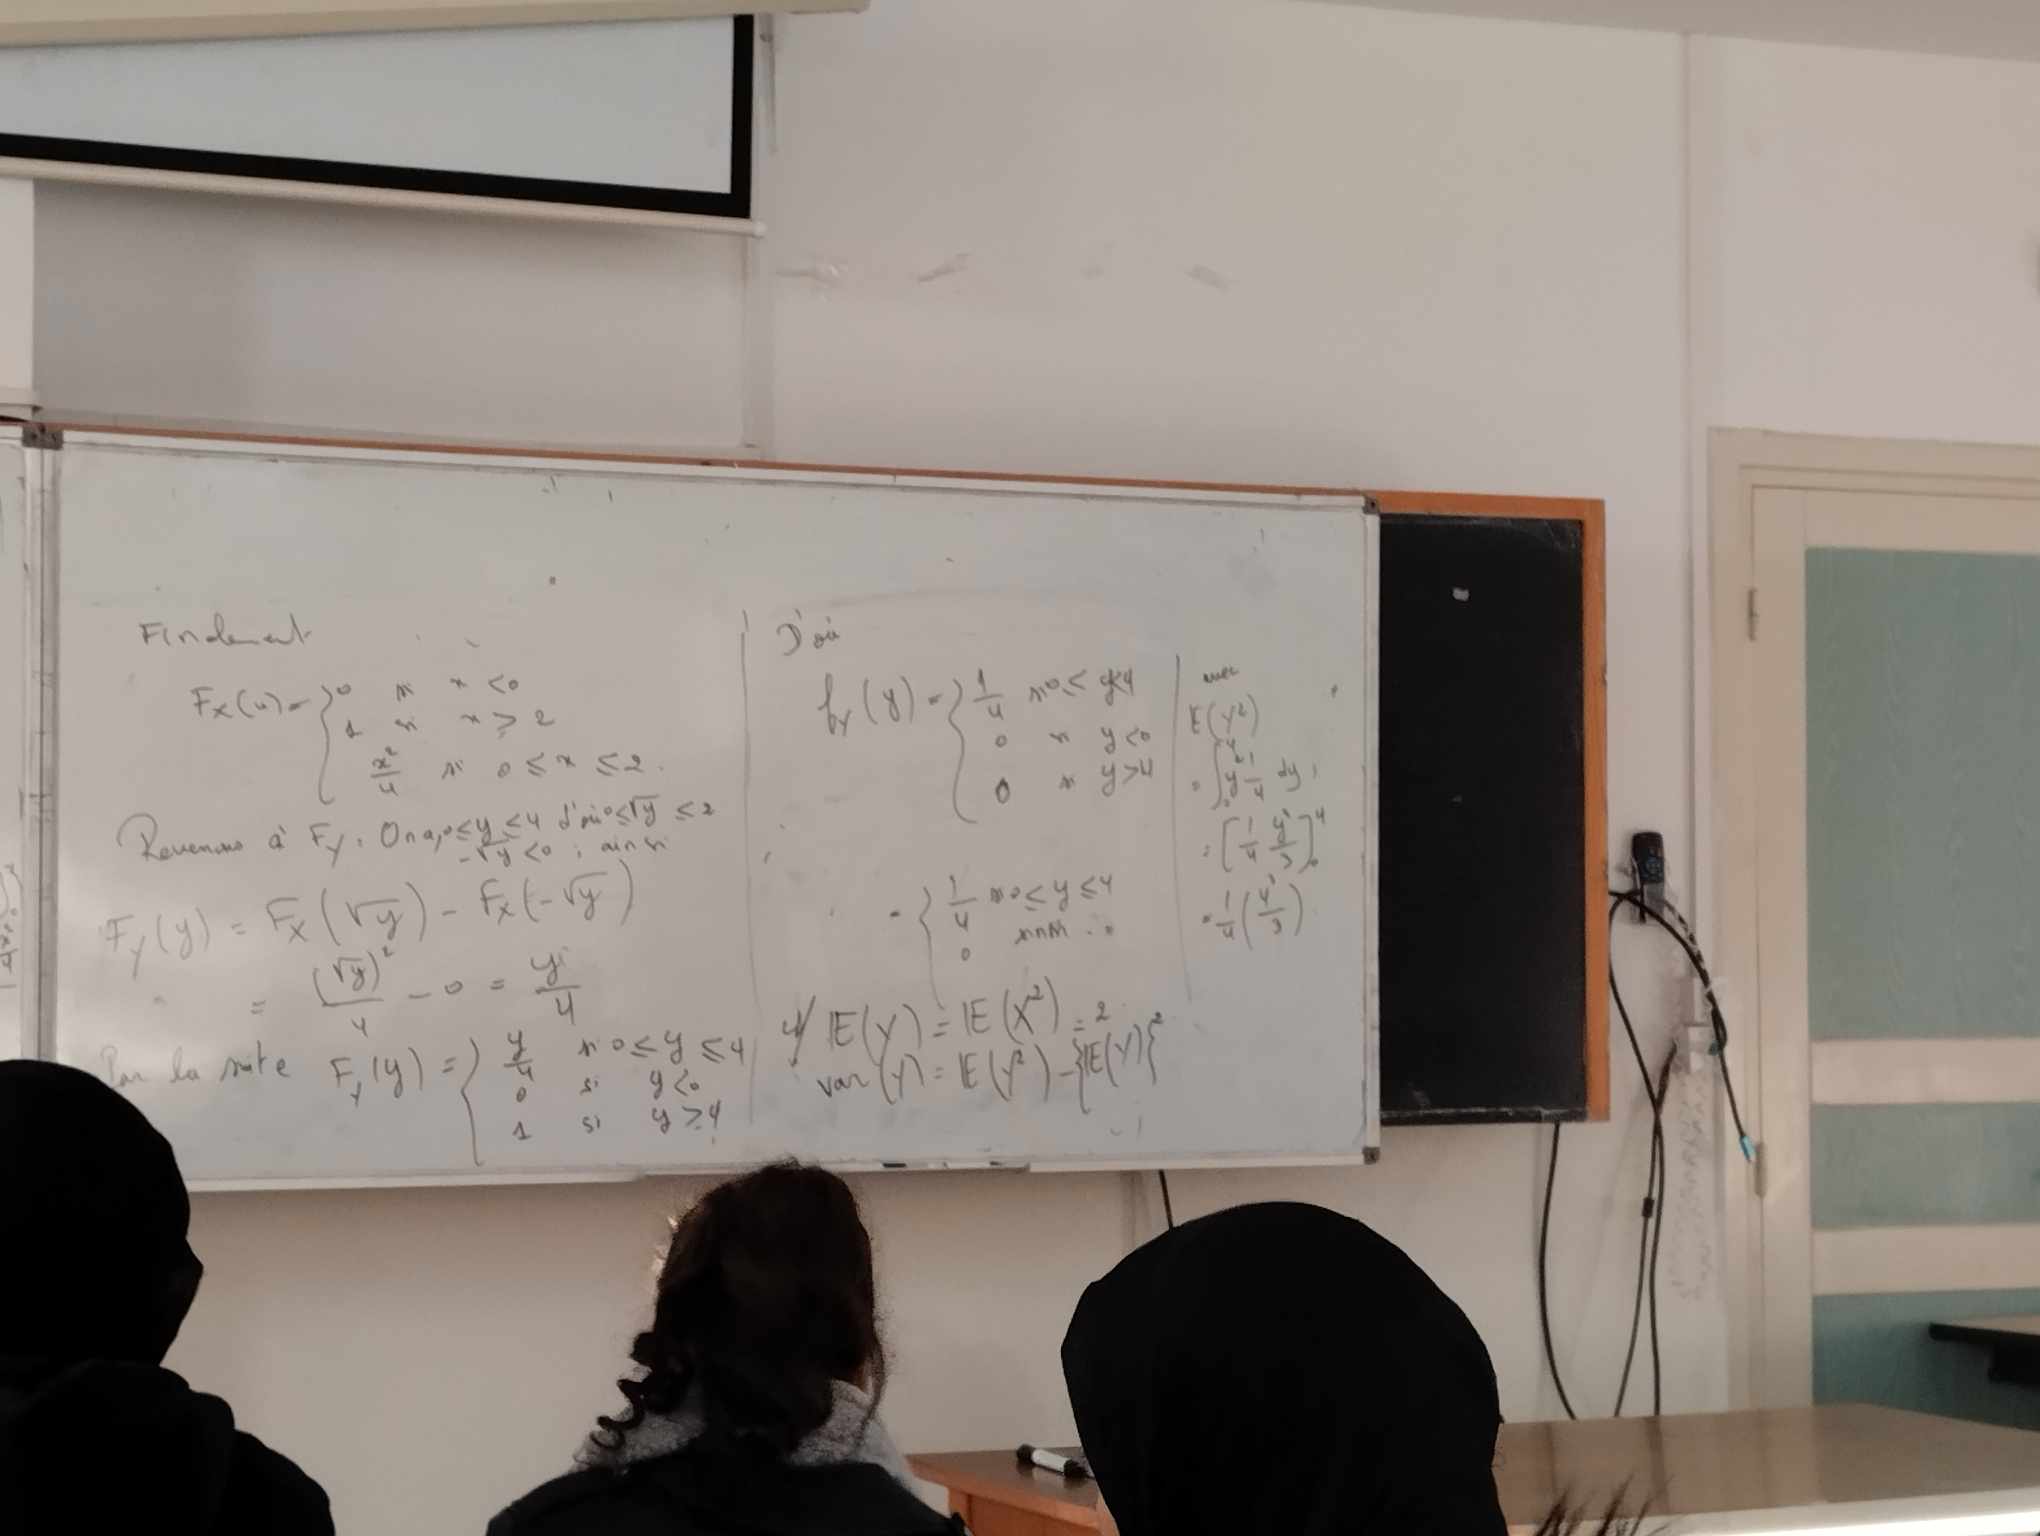 Finalement
Fx(x) = { 0 si x < 0
1 si x ≥ 2
x²/4 si 0 ≤ x ≤ 2.
Revenons à Fy. On a, 0 ≤ y ≤ 4 d'où 0 ≤ √y ≤ 2
-√y < 0 ; ainsi
Fy(y) = Fx(√y) - Fx(-√y)
= (√y)²/4 - 0 = y/4
Par la suite Fy(y) = { y/4 si 0 ≤ y ≤ 4
0 si y < 0
1 si y ≥ 4
D'où
fy(y) = { 1/4 si 0 ≤ y < 4
0 si y < 0
0 si y > 4
= { 1/4 si 0 ≤ y ≤ 4
0 sinon
4/ E(Y) = E(X²) = 2
var(Y) = E(Y²) - {E(Y)}²
avec
E(Y²)
= ∫₀⁴ y² 1/4 dy
= [1/4 y³/3]₀⁴
= 1/4 (4³/3)